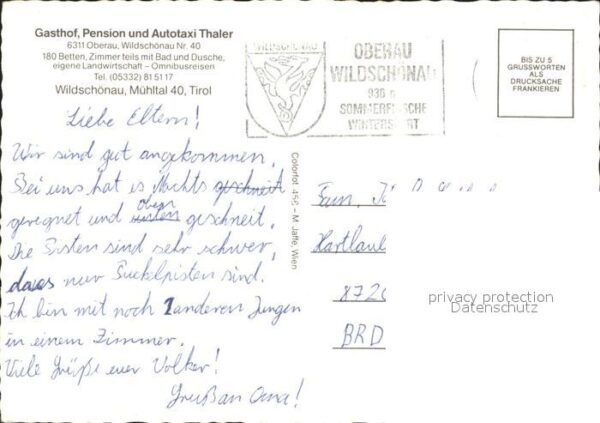 Gasthof, Pension und Autotaxi Thaler
6311 Oberau, Wildschönau Nr. 40
180 Betten, Zimmer teils mit Bad und Dusche,
eigene Landwirtschaft – Omnibusreisen
Tel. (05332) 81 51 17
Wildschönau, Mühltal 40, Tirol
WILDSCHÖNAU
OBERAU
WILDSCHÖNAU
936 m
SOMMERFRISCHE
WINTERSPORT
BIS ZU 5
GRUSSWORTEN
ALS
DRUCKSACHE
FRANKIEREN
Liebe Eltern!
Wir sind gut angekommen,
Bei uns hat es Nachts geschneit
geregnet und oben geschneit,
Die Pisten sind sehr schwer,
dass nur Buckelpisten sind.
Ich bin mit noch 1 anderen Jungen
in einem Zimmer.
Viele Grüße euer Volker!
Gruß an Oma!
Colorfot 452 - M. Jaffé Wien
Fam.
8720
BRD
privacy protection
Datenschutz